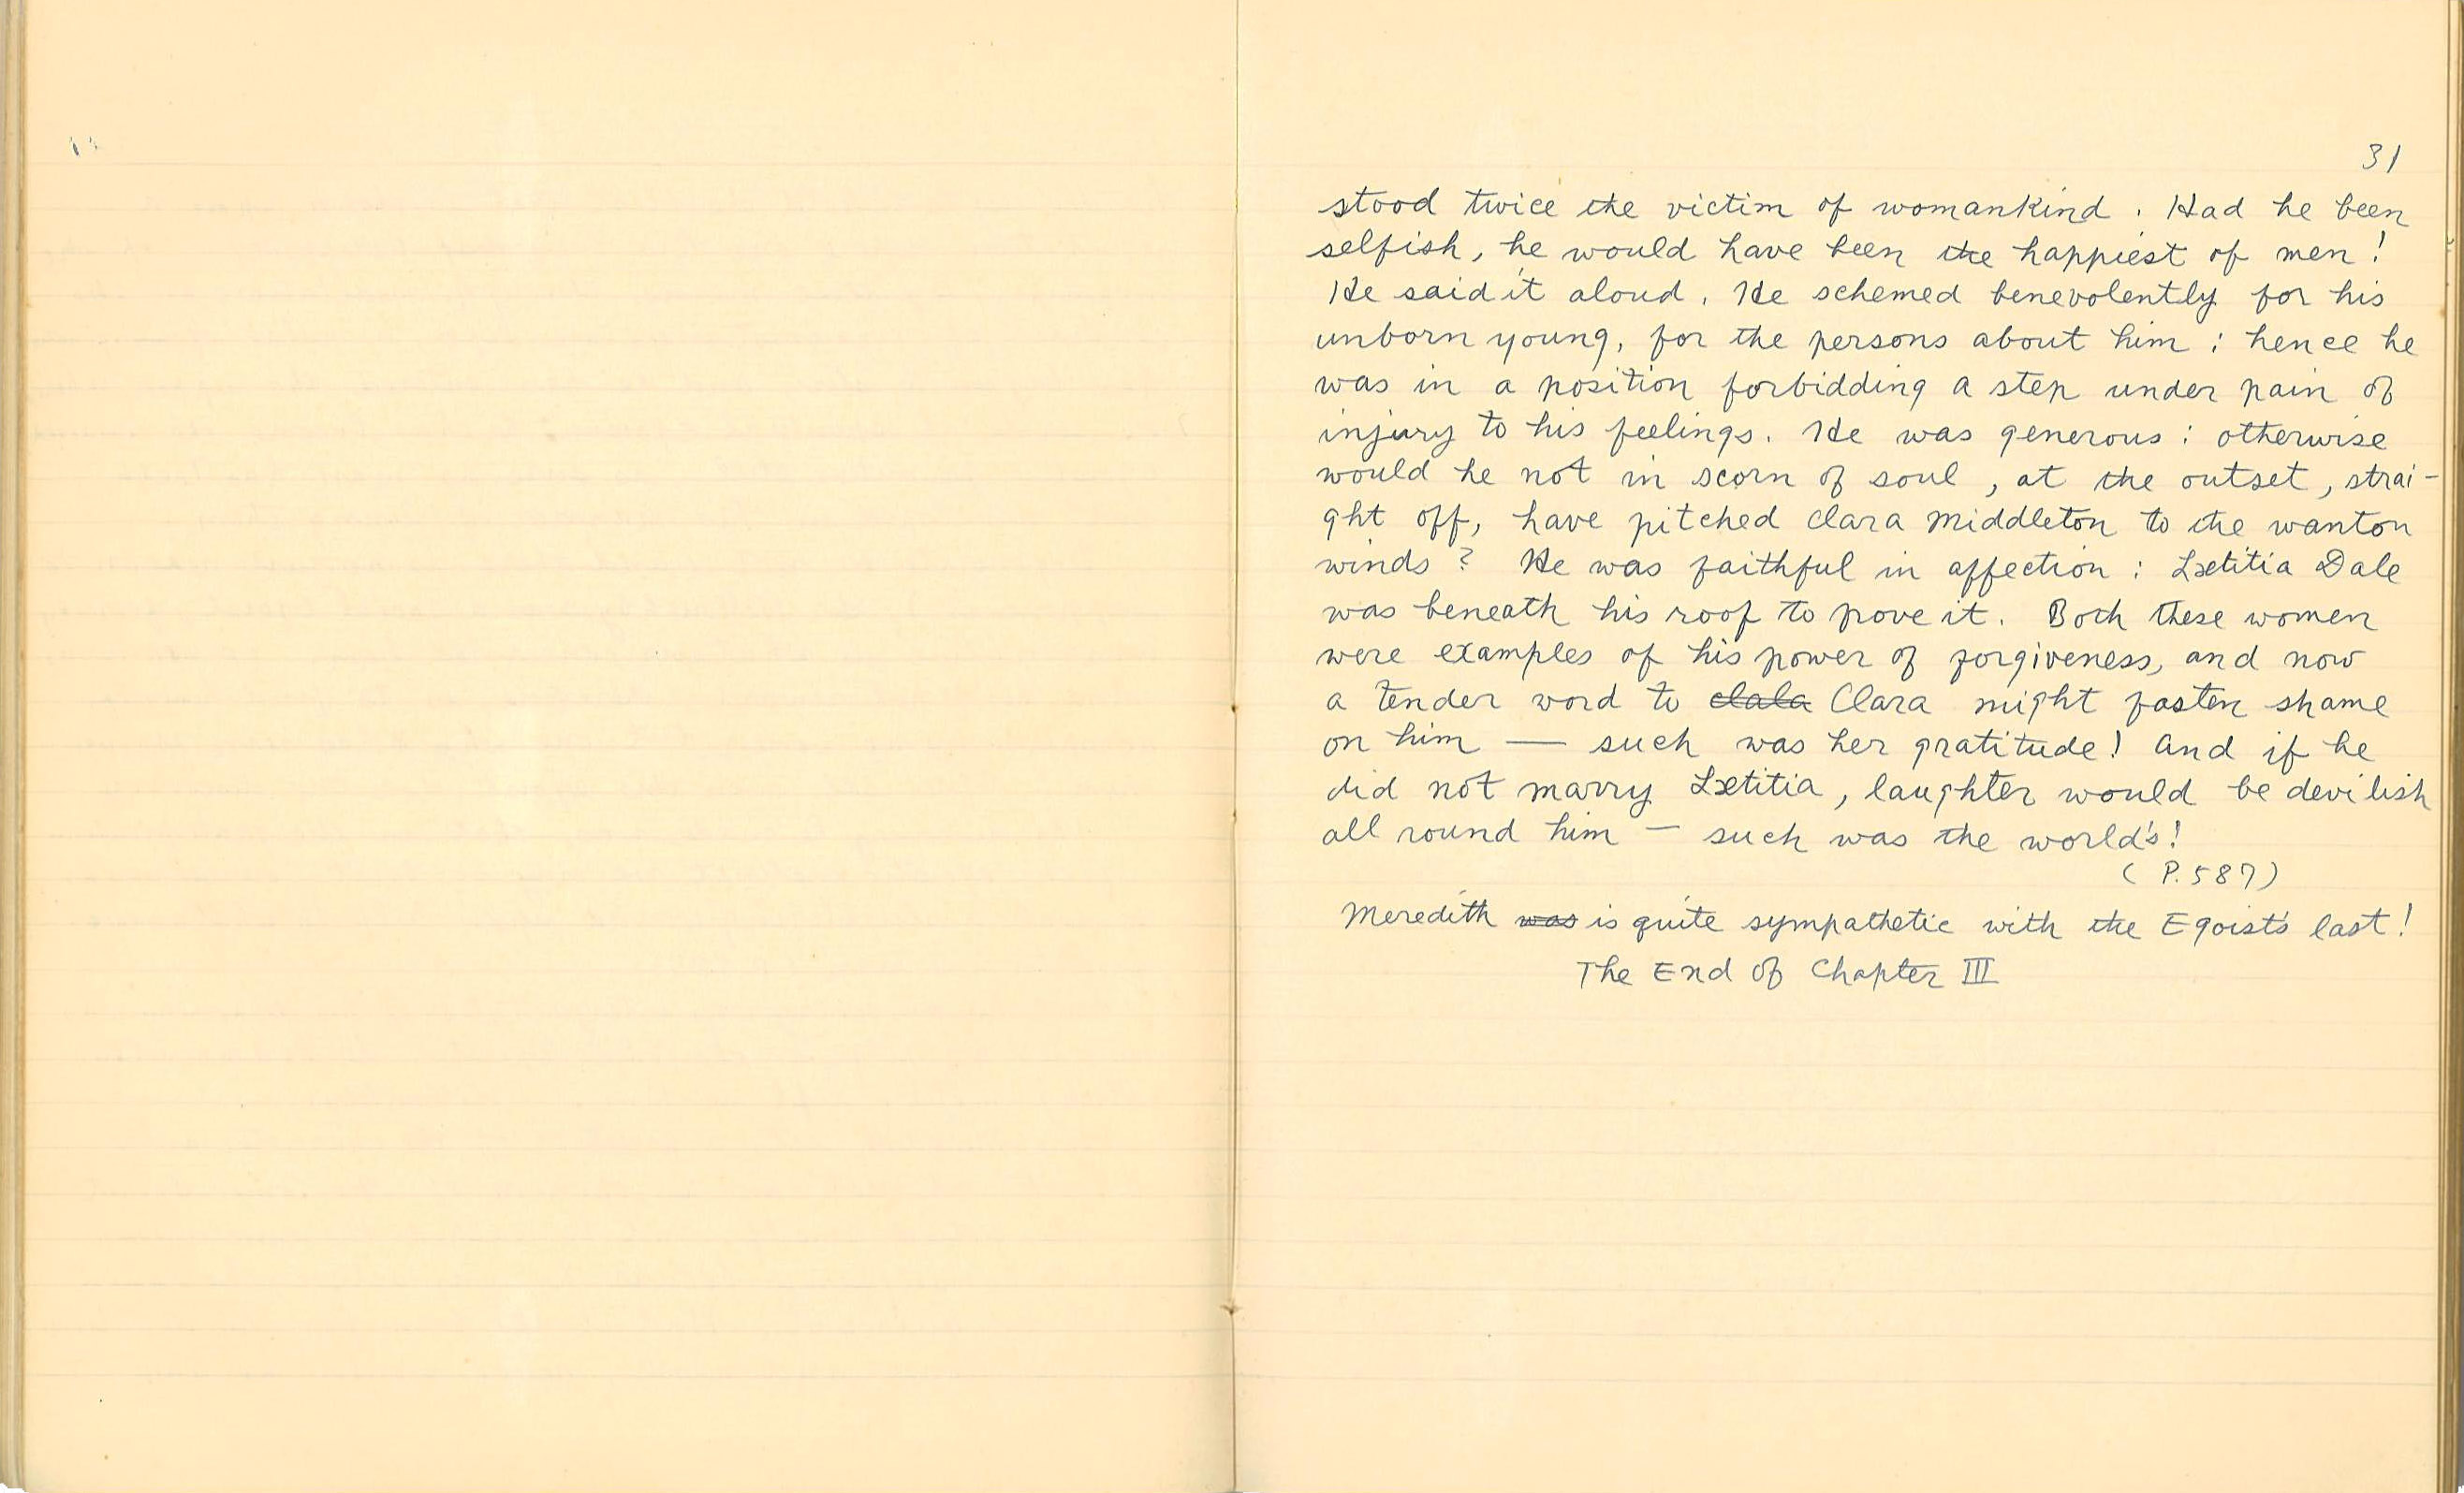 31
stood twice the victim of womankind. Had he been
selfish, he would have been the happiest of men!
He said it aloud. He schemed benevolently for his
unborn young, for the persons about him: hence he
was in a position forbidding a step under pain of
injury to his feelings. He was generous: otherwise
would he not in scorn of soul, at the outset, strai-
ght off, have pitched Clara Middleton to the wanton
winds? He was faithful in affection: Lætitia Dale
was beneath his roof to prove it. Both these women
were examples of his power of forgiveness, and now
a tender word to clala Clara might fasten shame
on him — such was her gratitude! And if he
did not marry Lætitia, laughter would be devilish
all round him — such was the world's!
(P.587)
Meredith was is quite sympathetic with the Egoist's last!
The End of Chapter III